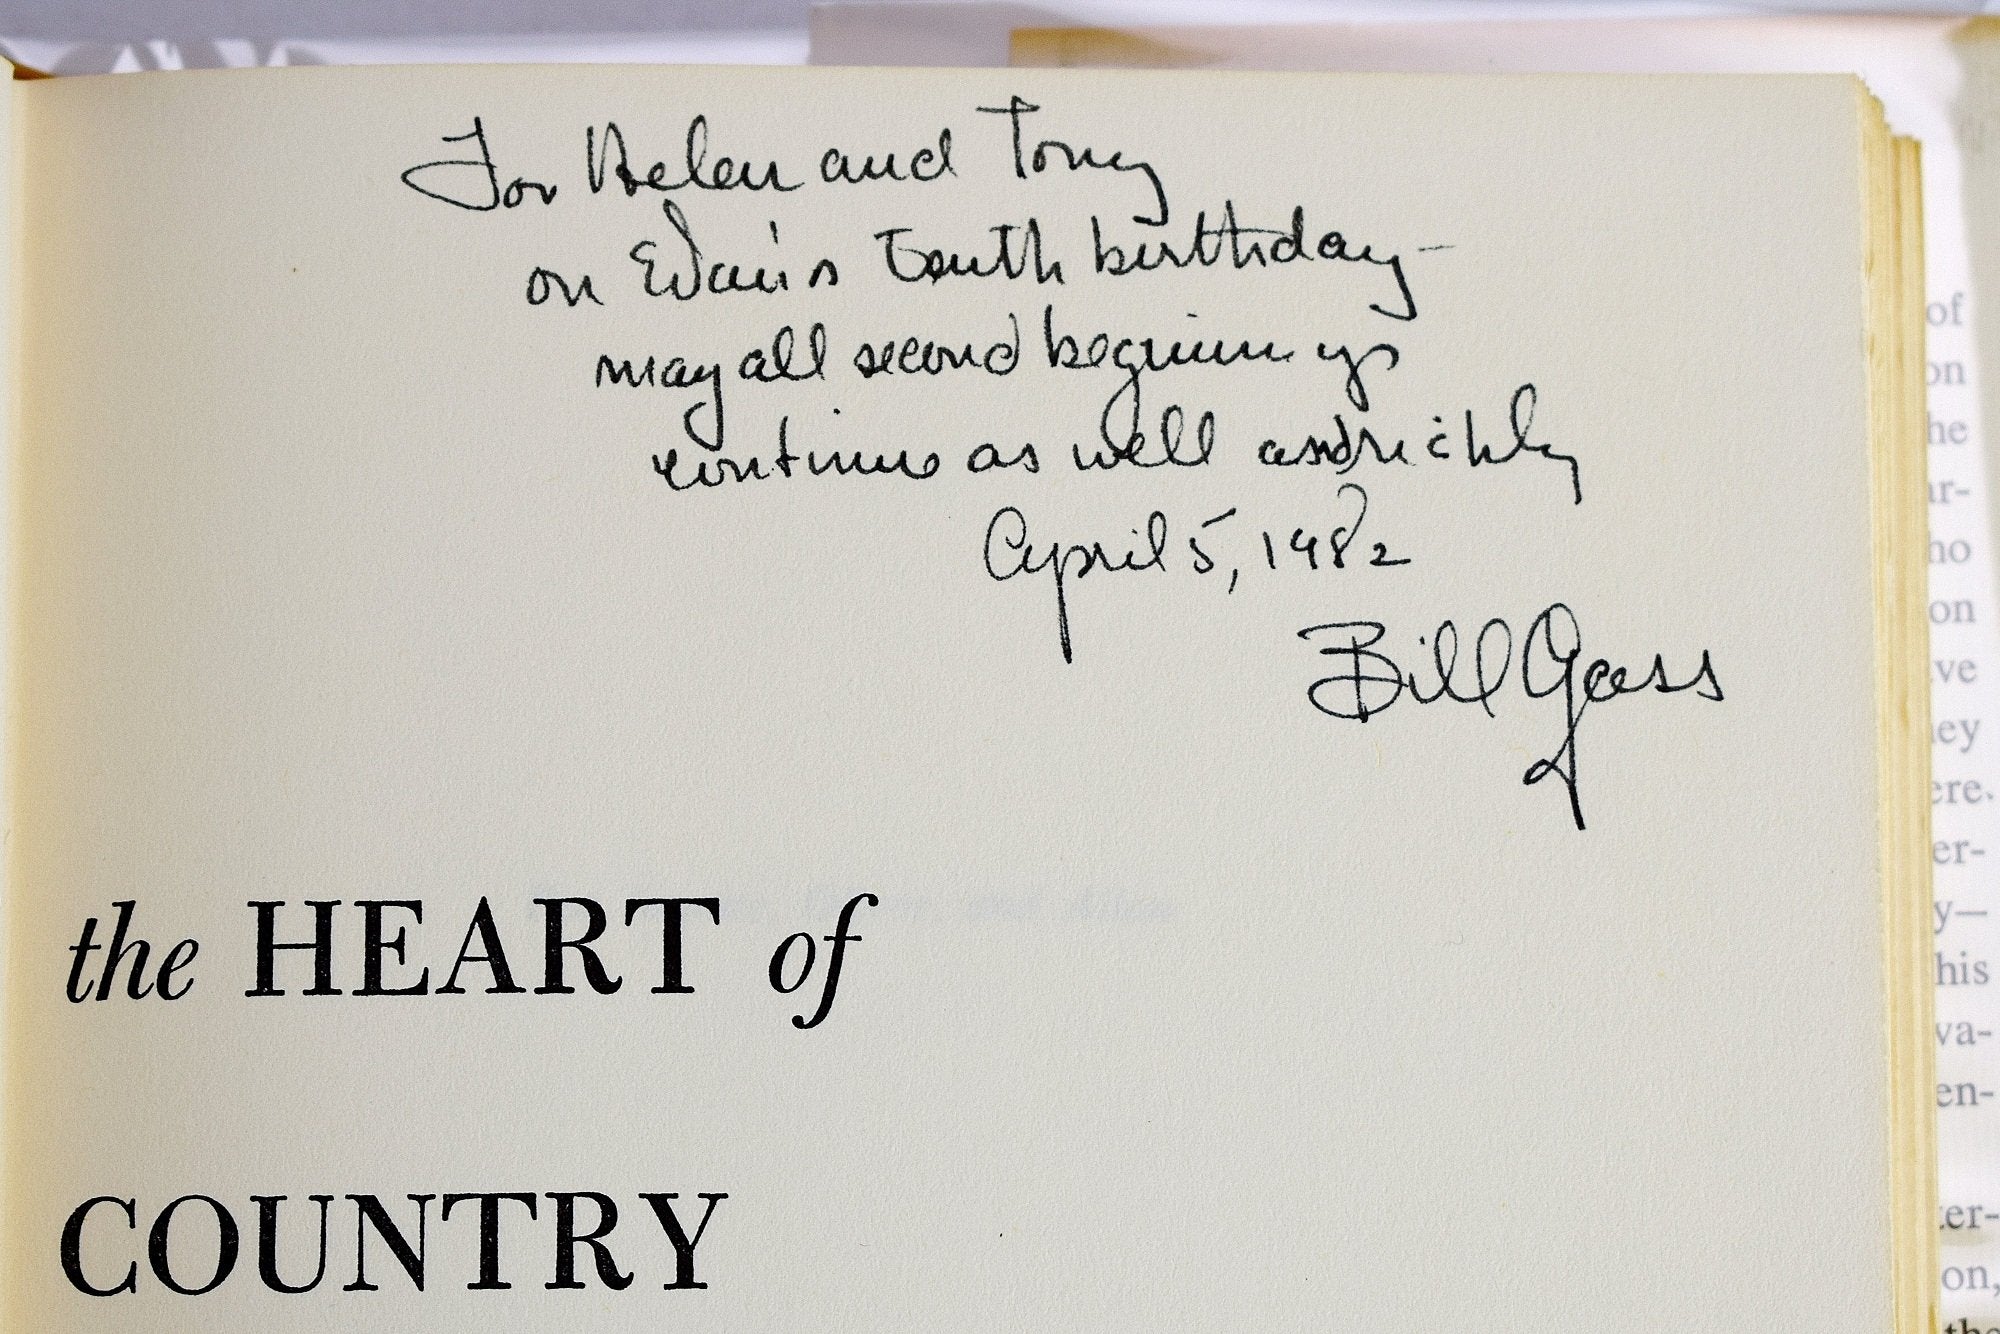 For Helen and Tony
on Evan's tenth birthday—
may all second beginnings
continue as well and richly
April 5, 1982
Bill Gass
the HEART of
COUNTRY
of
on
he
ar-
ho
on
ve
ey
ere.
er-
y—
his
va-
en-
ter-
on,
the